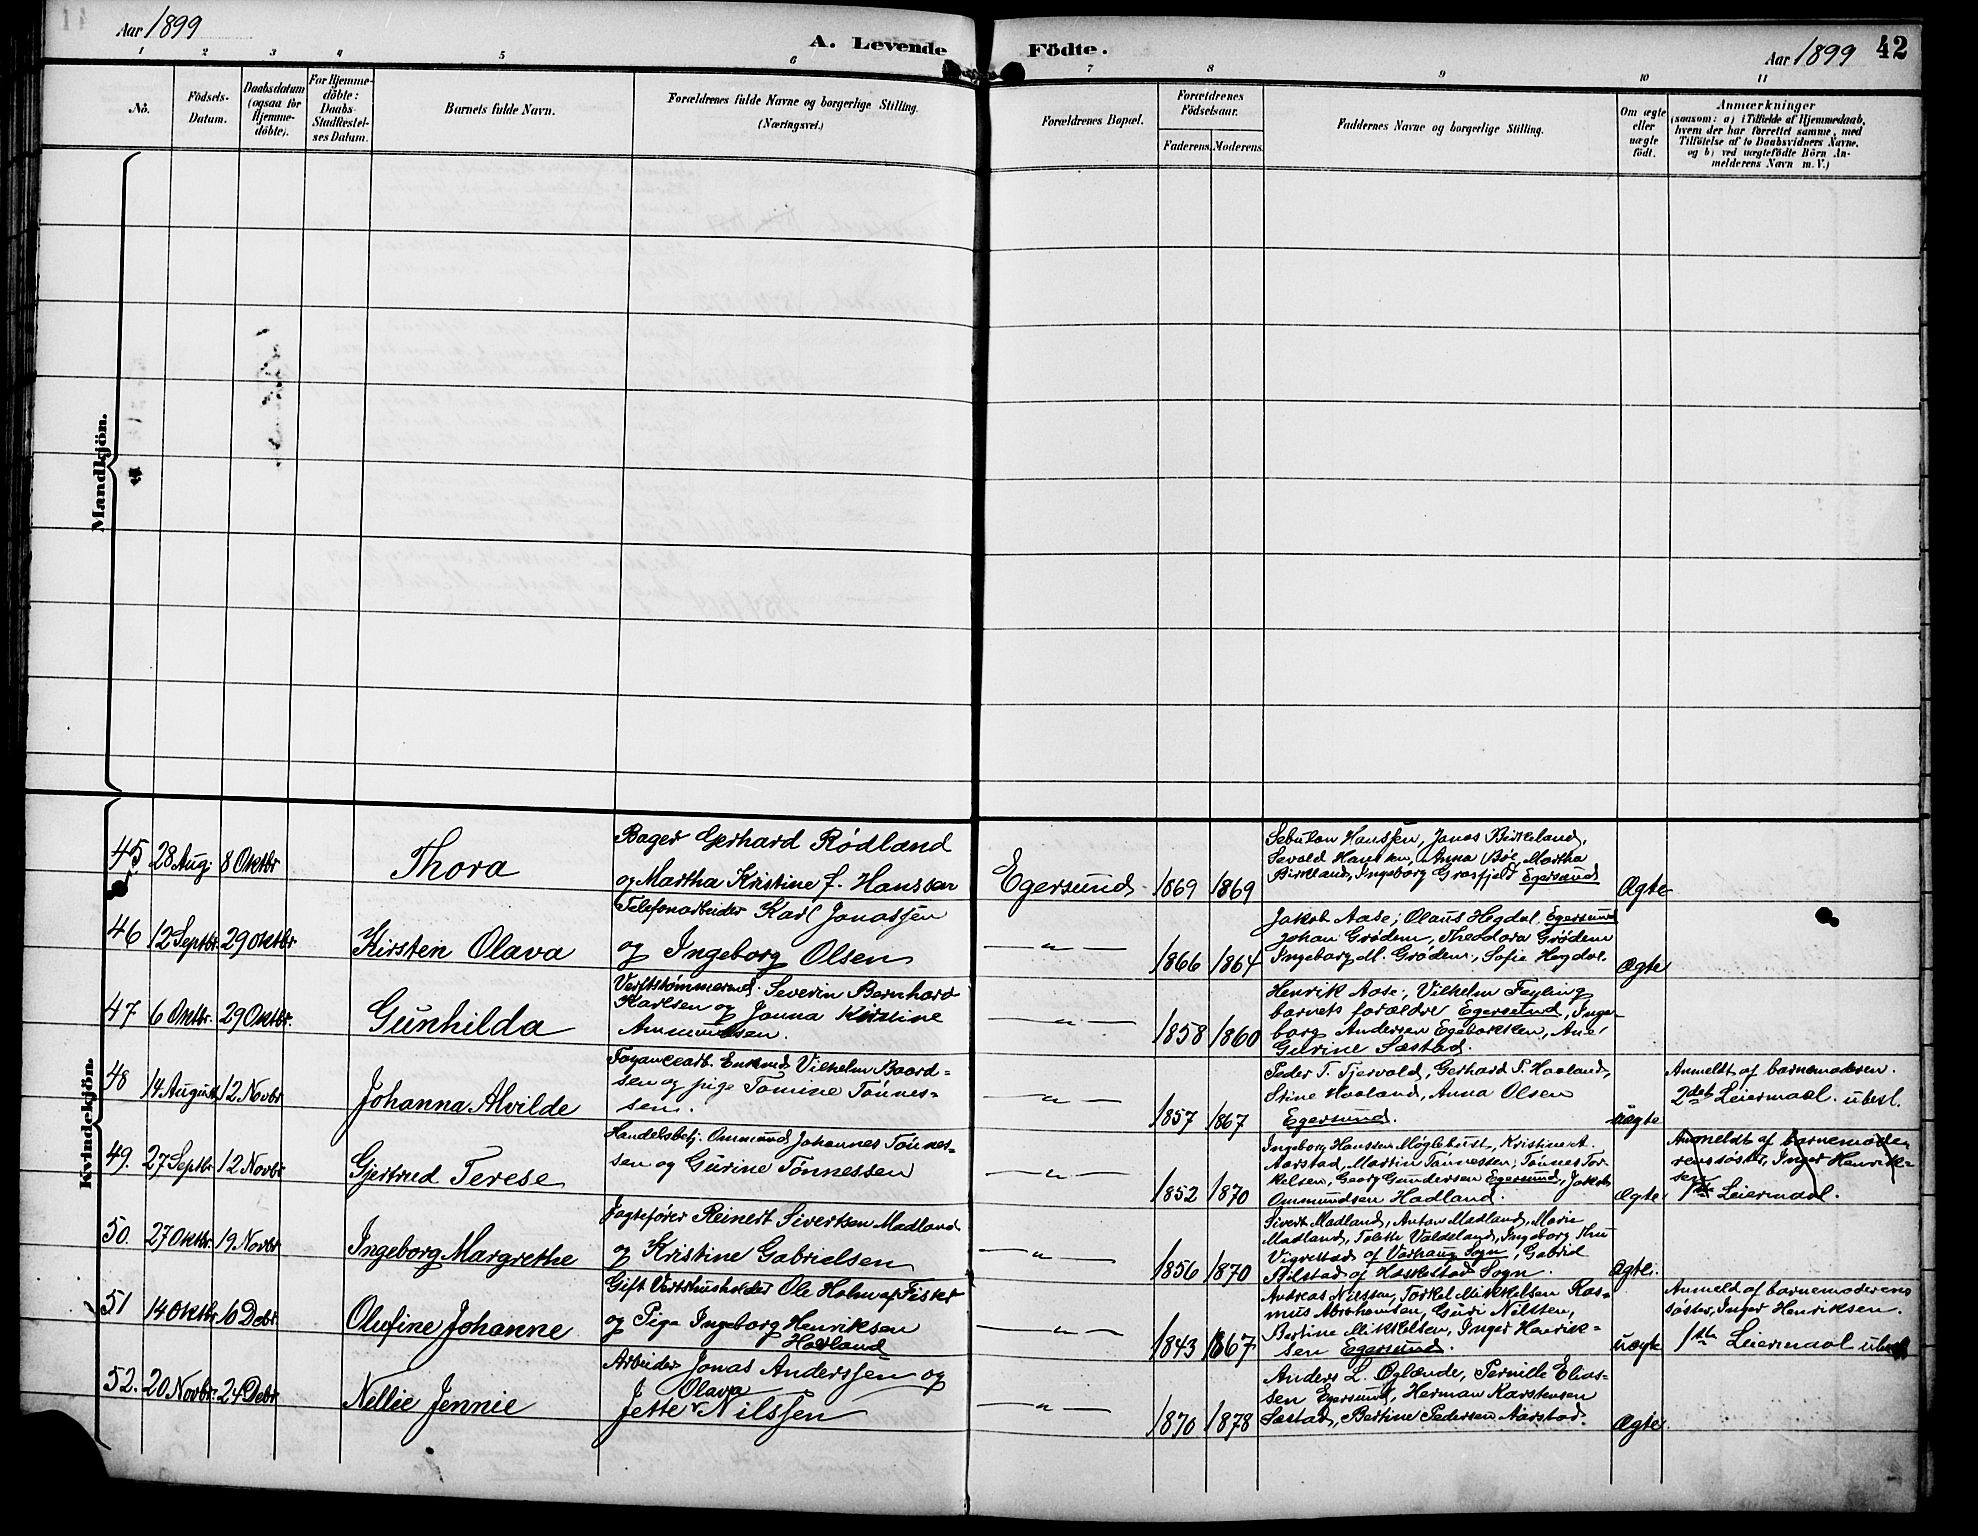 Aar 1899
A. Levende Födte.
Aar 1899
42
1 2 3 4 5 6 7 8 9 10 11
No.
Födsels-
Datum.
Daabsdatum
(ogsaa for
Hjemme-
döbte).
For Hjemme-
döbte:
Daabs-
Stadfestel-
ses Datum.
Barnets fulde Navn.
Forældrenes fulde Navne og borgerlige Stilling.
(Næringsvei.)
Forældrenes Bopæl.
Forældrenes
Födselsaar.
Faderens. Moderens.
Faddernes Navne og borgerlige Stilling.
Om ægte
eller
uægte
født.
Anmærkninger
(saasom: a) i Tilfælde af Hjemmedaab,
hvem der har forrettet samme, med
Tilföielse af to Daabsvidners Navne.
og b) ved uægtefödte Börn An-
melderens Navn m. V.)
Mandkjön.
Kvindekjön.
45 28 Aug. 8 Oktbr
Thora
Bager Gerhard Rødland
og Martha Kristine f. Hanssen
Egersund
1869 1869
Sebulon Hanssen, Jonas Birkeland,
Sevald Hanssen, Anna Bøe, Martha
Birkland, Ingeborg Grasfjeld Egersund
Ægte
46 12 Septbr. 29 Oktbr.
Kirsten Olava
Telefonarbeider Karl Jonassen
og Ingeborg Olsen
— " —
1866 1864
Jakob Aase, Olaus Hegdal, Egersund
Johan Grødem, Theodora Grødem
Ingeborg M. Grødem, Sofie Hegdal.
Ægte
47 6 Oktbr. 29 Oktbr.
Gunhilda
Verftstømmermd. Severin Bernhard
Karlsen og Janna Kirstine
Ammundsen.
— " —
1858 1860
Henrik Aase, Vilhelm Feyling
barnets forældre Egersund, Inge-
borg Andersen Egebakken, Ane
Gurine Sæstad.
48 14 August 12 Novbr
Johanna Alvilde
Fayancearb. Enkemd Vilhelm Baard-
sen og pige Tomine Tønnes-
sen.
— " —
1857 1867
Peder T. Tjervald, Gerhard P. Haaland,
Stine Haaland, Anna Olsen
Egersund.
uægte
Anmeldt af barnemoderen.
2det Leiermaal. ubesl.
49. 27 Septbr. 12 Novbr
Gjertrud Terese
Handelsbetj. Ommund Johannes Tønnes-
sen og Gurine Tønnessen
— " —
1852 1870
Ingeborg Hanssen Møglebust, Kristine A.
Aarstad, Martin Tønnessen, Tønnes Tor-
kelsen, Georg Gundersen Egersund, Jakob
Ommundsen Hadland.
Ægte
Anmeldt af barnemode-
rens søster, Inger Henrik-
sen
1ste Leiermaal.
50. 27 Oktbr. 19 Novbr
Ingeborg Margrethe
Jagtefører Reinert Sivertsen Madland
og Kristine Gabrielsen
— " —
1856 1870
Sivert Madland, Anton Madland, Marie
Madland, Tolette Valdeland, Ingeborg Thu
Vigrestad af Varhaug Sogn, Gabriel
af Hæskestad Sogn.
Ægte.
51 14 Oktbr. 10 Debr.
Olufine Johanne
Gift Vertshusholder Ole Holm af Fisker
og Pige Ingeborg Henriksen
Hadland
— " —
1843 1867
Andreas Nilssen, Torkel Mikkelsen Ras-
mus Abrahamsen, Guri Nilssen,
Bertine Mikkelsen, Inger Henrik-
sen Egersund.
uægte
Anmeld af barnemoderens
søster, Inger Henriksen.
1ste Leiermaal
52. 20 Novbr. 24 Debr.
Nellie Jennie
Arbeider Jonas Anderssen og
Jette Olava Nilssen
— " —
1870 1878
Anders L. Øglænde, Pernille Elias-
sen Egersund, Herman Karstensen
Sæstad, Bertine Pedersen Aarstad.
Ægte